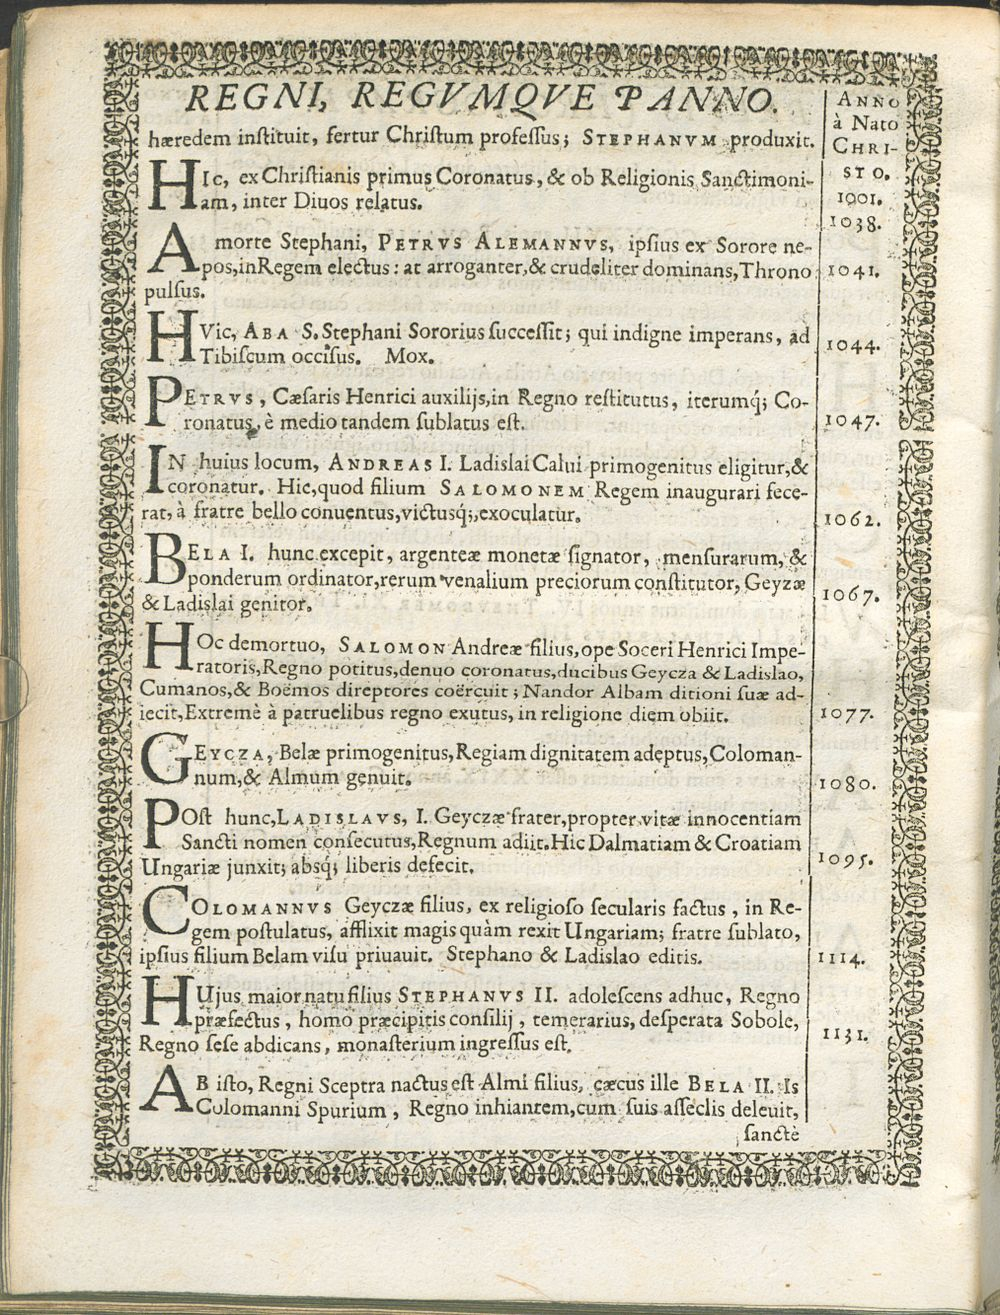 REGNI, REGVMQVE PANNO.
ANNO
à Nato
CHRI-
STO.
hæredem instituit, fertur Christum professus; STEPHANVM produxit.
HIc, ex Christianis primus Coronatus, & ob Religionis Sanctimoni-
am, inter Diuos relatus.
1001.
1038.
A morte Stephani, PETRVS ALEMANNVS, ipsius ex Sorore ne-
pos, in Regem electus: at arroganter, & crudeliter dominans, Throno
1041.
pulsus.
HVic, ABA S. Stephani Sororius successit; qui indigne imperans, ad
Tibiscum occisus. Mox.
1044.
PETRVS, Cæsaris Henrici auxilijs, in Regno restitutus, iterumq; Co-
ronatus, è medio tandem sublatus est.
1047.
IN huius locum, ANDREAS I. Ladislai Calui primogenitus eligitur, &
coronatur. Hic, quod filium SALOMONEM Regem inaugurari fece-
rat, à fratre bello conuentus, victusq;, exoculatur.
1062.
BELA I. hunc excepit, argenteæ monetæ signator, mensurarum, &
ponderum ordinator, rerum venalium preciorum constitutor, Geyzæ
1067.
& Ladislai genitor.
HOc demortuo, SALOMON Andreæ filius, ope Soceri Henrici Impe-
ratoris, Regno potitus, denuo coronatus, ducibus Geycza & Ladislao,
Cumanos, & Boëmos direptores coërcuit; Nandor Albam ditioni suæ ad-
iecit, Extremè à patruelibus regno exutus, in religione diem obiit.
1077.
GEYCZA, Belæ primogenitus, Regiam dignitatem adeptus, Coloman-
num, & Almum genuit.
1080.
POst hunc, LADISLAVS, I. Geyczæ frater, propter vitæ innocentiam
Sancti nomen consecutus, Regnum adiit. Hic Dalmatiam & Croatiam
Ungariæ junxit; absq; liberis defecit.
1095.
COLOMANNVS Geyczæ filius, ex religioso secularis factus, in Re-
gem postulatus, afflixit magis quàm rexit Ungariam; fratre sublato,
ipsius filium Belam visu priuauit. Stephano & Ladislao editis.
1114.
HUjus maior natu filius STEPHANVS II. adolescens adhuc, Regno
præfectus, homo præcipitis consilij, temerarius, desperata Sobole,
1131.
Regno sese abdicans, monasterium ingressus est.
AB isto, Regni Sceptra nactus est Almi filius, cæcus ille BELA II. Is
Colomanni Spurium, Regno inhiantem, cum suis asseclis deleuit,
sanctè